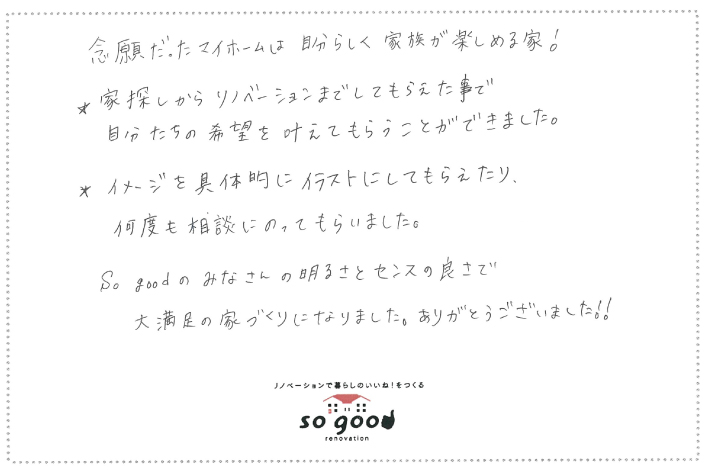 念願だったマイホームは 自分らしく 家族が楽しめる家!
* 家探しから リノベーションまでしてもらえた事で
自分たちの希望を 叶えてもらうことができました。
* イメージを具体的に イラストにしてもらえたり、
何度も相談にのってもらいました。
So goodのみなさんの明るさとセンスの良さで
大満足の家づくりになりました。ありがとうございました!!
リノベーションで暮らしのいいね!をつくる
so good
renovation